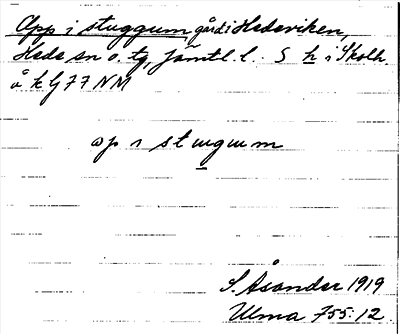 App i stuggum, gård i Hedeviken,
Hede sn o. tg, Jämtl. l. S h i Skolh.
å k lj 77 NM
ap i stuugum
S. Åsander 1919
Ulma 755:12